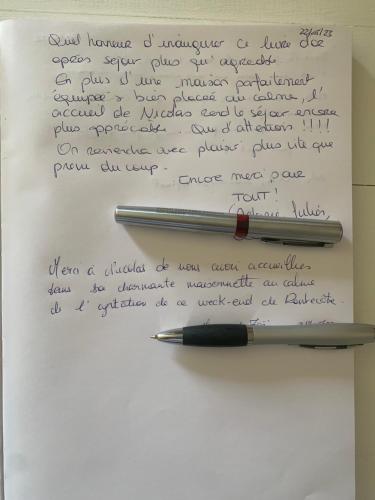 22/05/23
Quel honneur d'inaugurer ce livre d'or
après séjour plus qu'agréable.
En plus d'une maison parfaitement
équipée & bien placée au calme, l'
accueil de Nicolas rend le séjour encore
plus appréciable. Que d'attentions !!!!
On reviendra avec plaisir plus vite que
prévu du coup.
Encore merci pour
TOUT !
Merci à Nicolas de nous avoir accueillies
dans sa charmante maisonnette au calme
de l'agitation de ce week-end de Pentecôte.